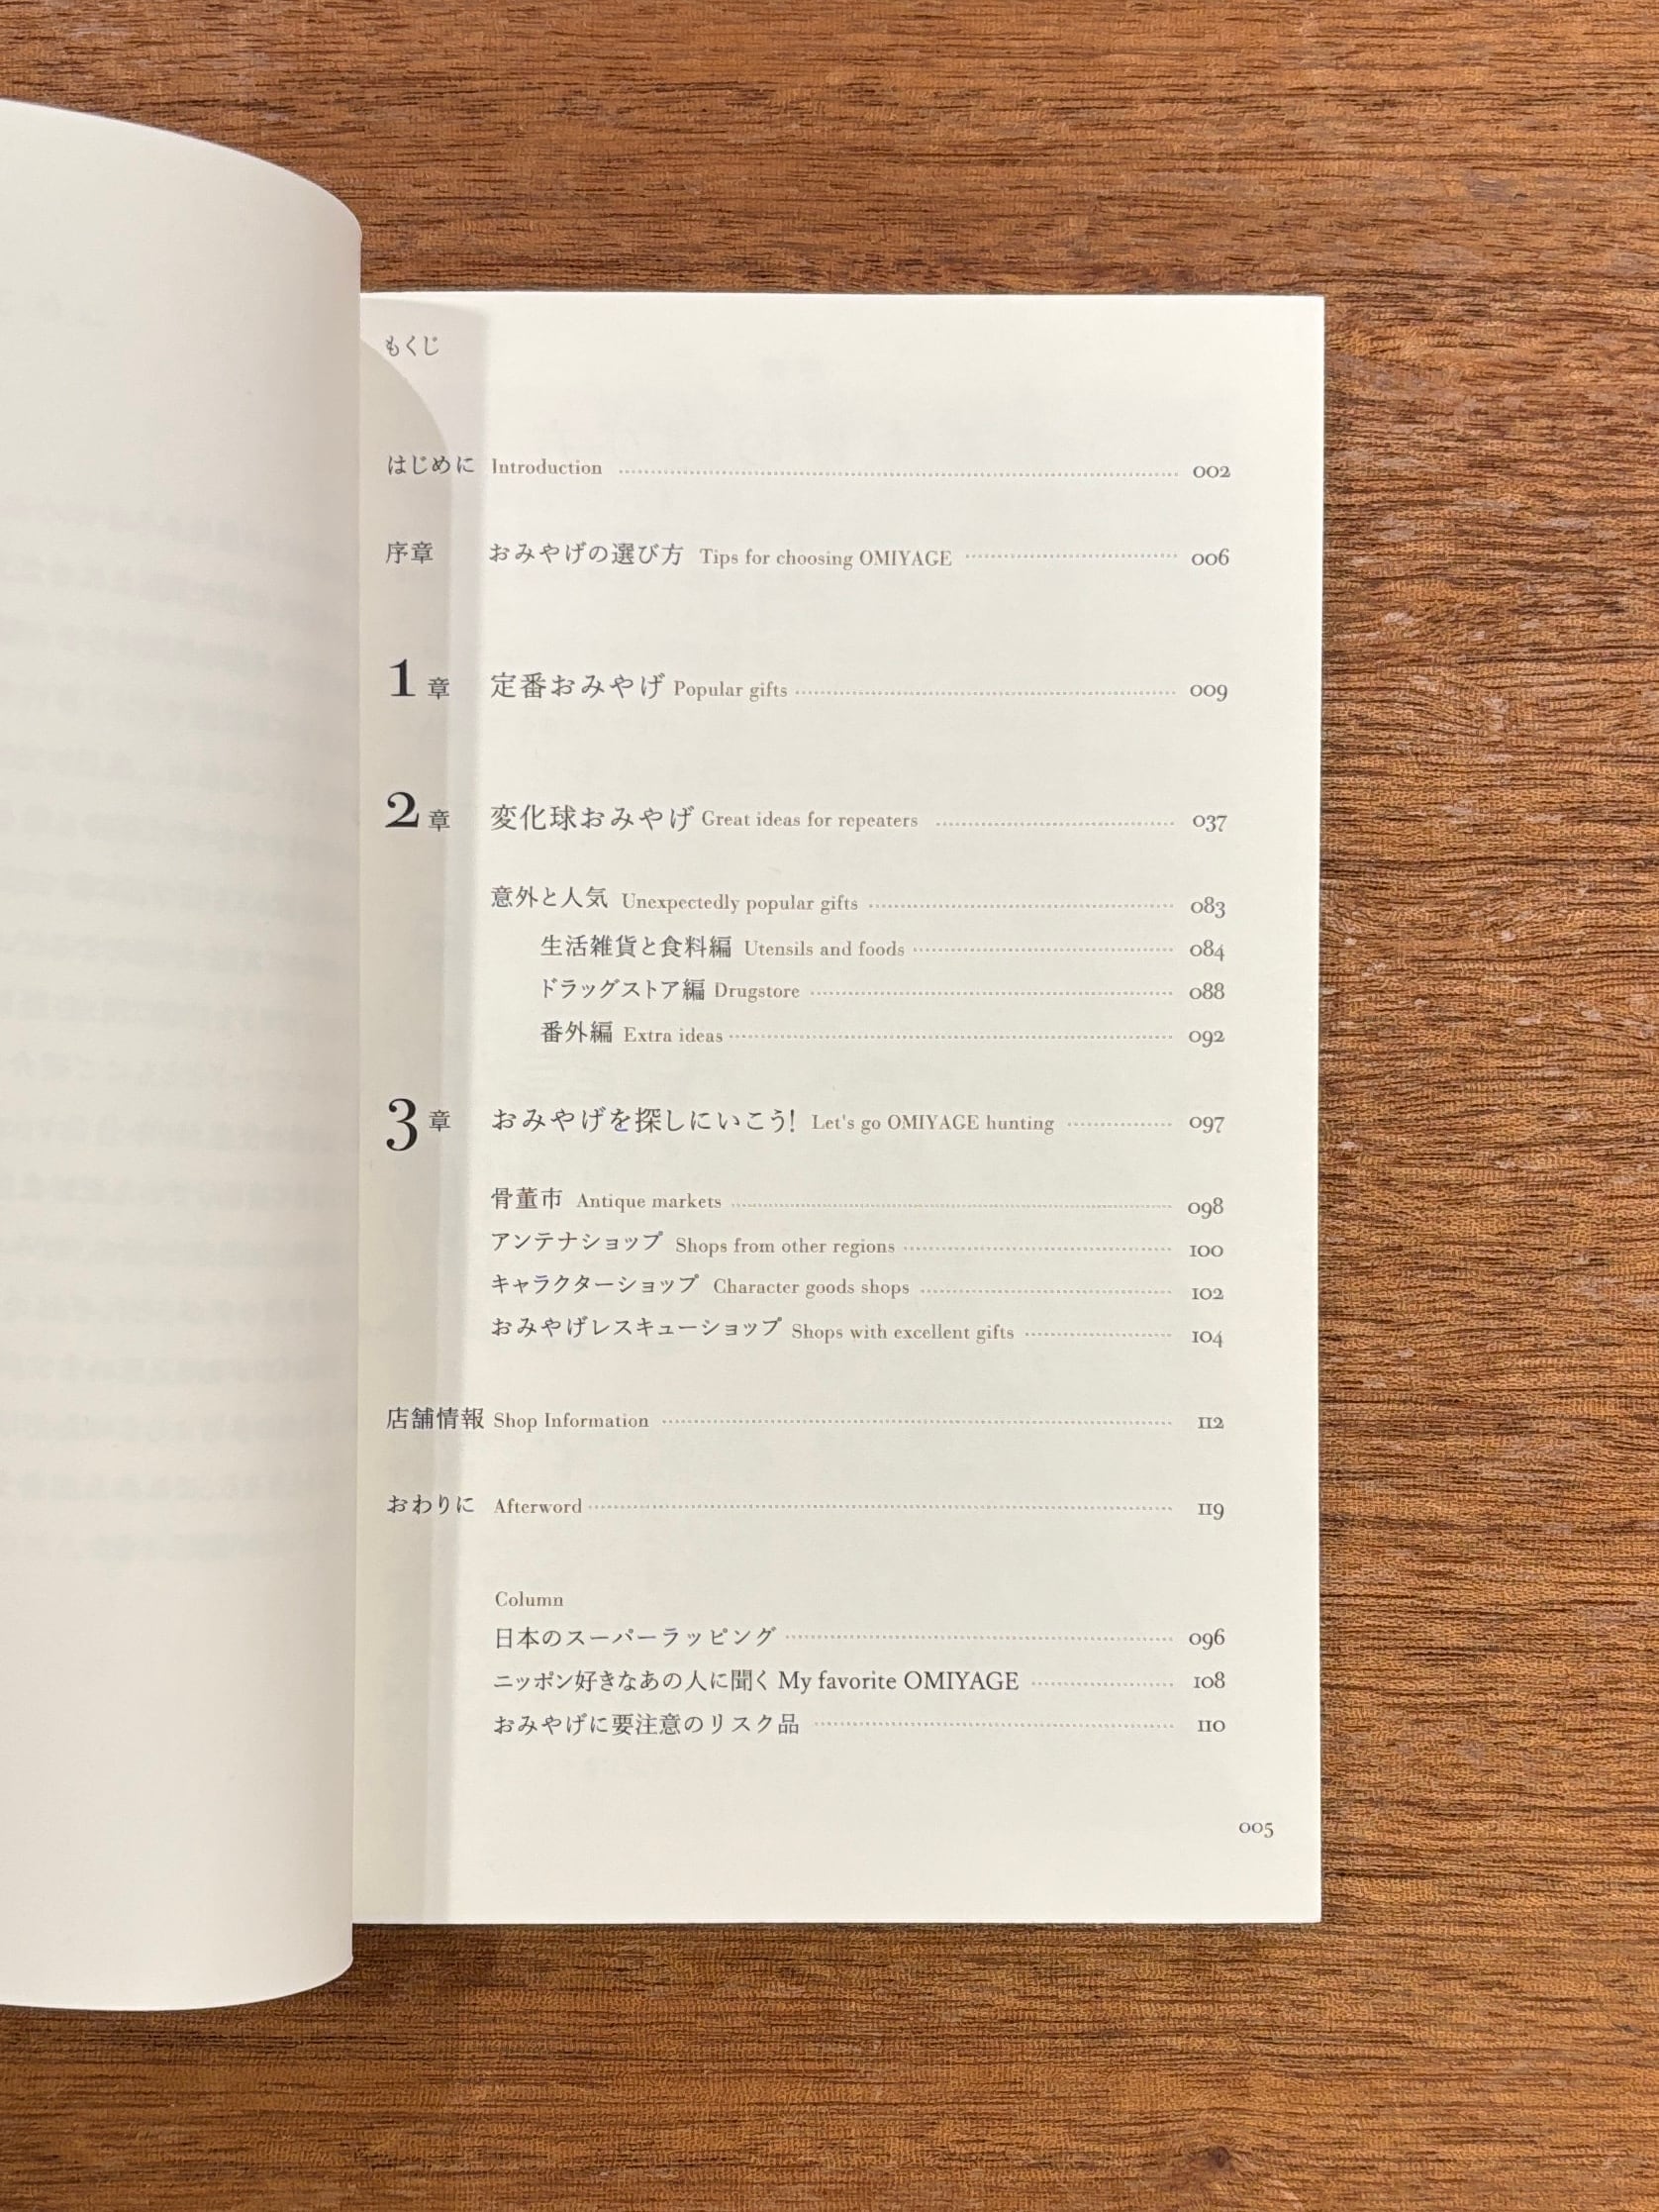 もくじ
はじめに Introduction 002
序章 おみやげの選び方 Tips for choosing OMIYAGE 006
1章 定番おみやげ Popular gifts 009
2章 変化球おみやげ Great ideas for repeaters 037
意外と人気 Unexpectedly popular gifts 083
生活雑貨と食料編 Utensils and foods 084
ドラッグストア編 Drugstore 088
番外編 Extra ideas 092
3章 おみやげを探しにいこう! Let's go OMIYAGE hunting 097
骨董市 Antique markets 098
アンテナショップ Shops from other regions 100
キャラクターショップ Character goods shops 102
おみやげレスキューショップ Shops with excellent gifts 104
店舗情報 Shop Information 112
おわりに Afterword 119
Column
日本のスーパーラッピング 096
ニッポン好きなあの人に聞く My favorite OMIYAGE 108
おみやげに要注意のリスク品 110
005